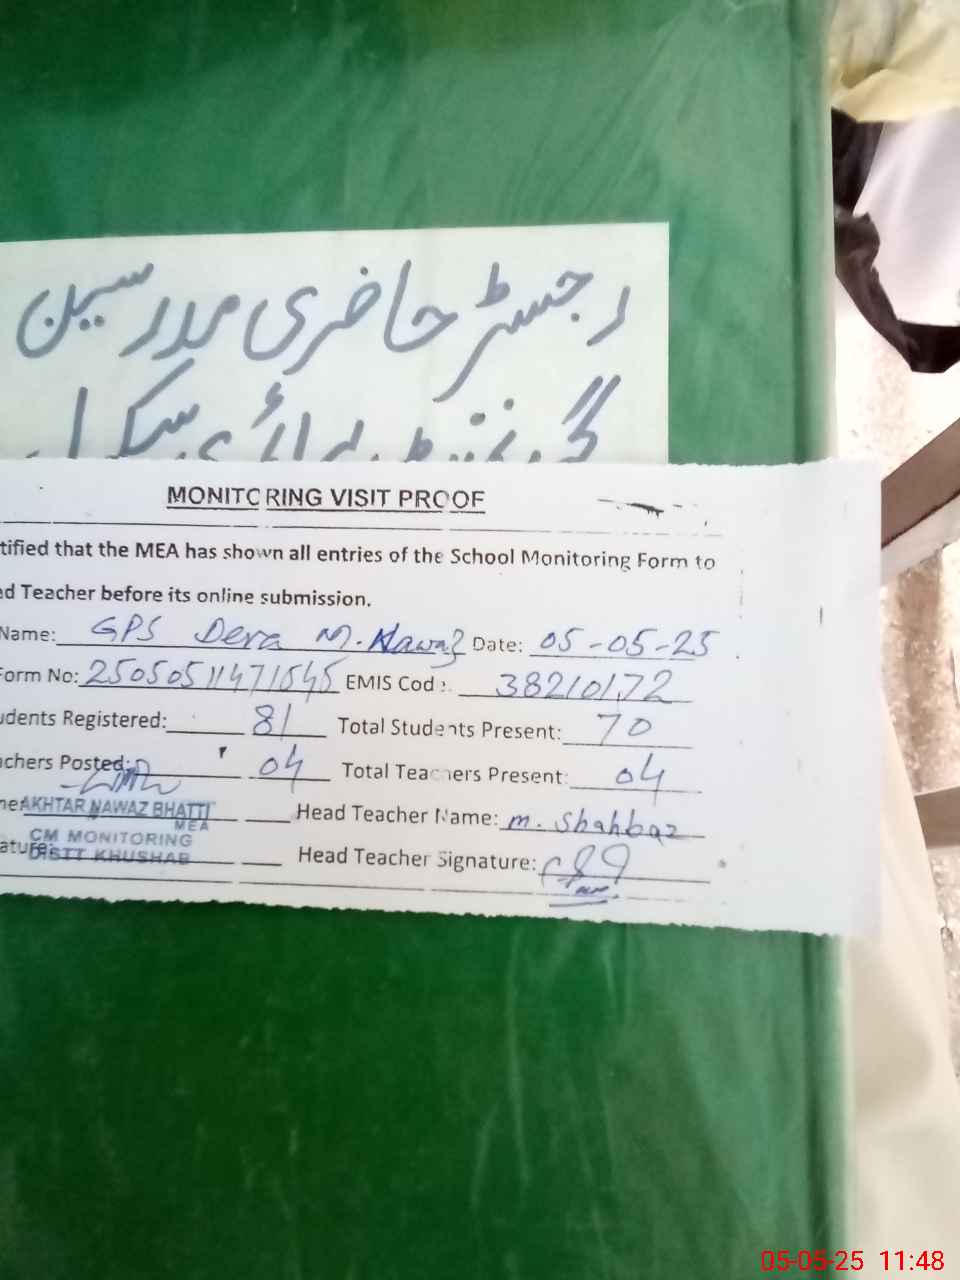 رجسٹر حاضری مدرسین
گورنمنٹ پرائمری سکول
MONITORING VISIT PROOF
tified that the MEA has shown all entries of the School Monitoring Form to
d Teacher before its online submission.
Name: GPS Dera M. Nawaz Date: 05-05-25
Form No: 25050511471545 EMIS Cod : 38210172
udents Registered: 81 Total Students Present: 70
chers Posted: 04 Total Teachers Present: 04
me AKHTAR NAWAZ BHATTI Head Teacher Name: M. Shahbaz
MEA
CM MONITORING
ature: DISTT KHUSHAB Head Teacher Signature:
05-05-25 11:48